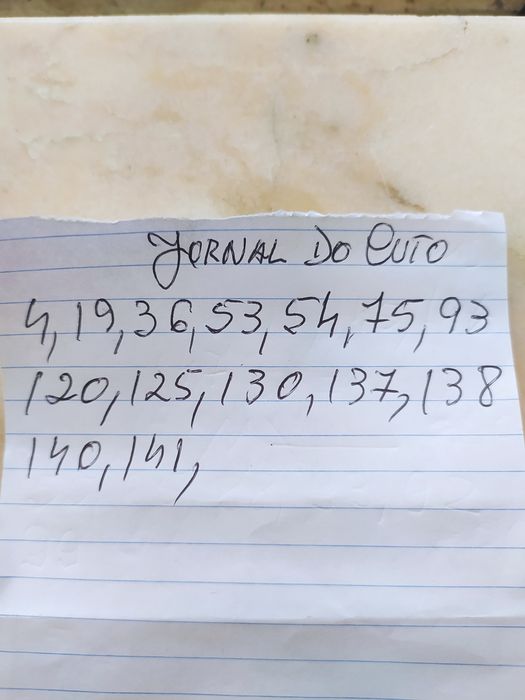 JORNAL DO CUTO
4, 19, 36, 53, 54, 75, 93
120, 125, 130, 137, 138
140, 141,